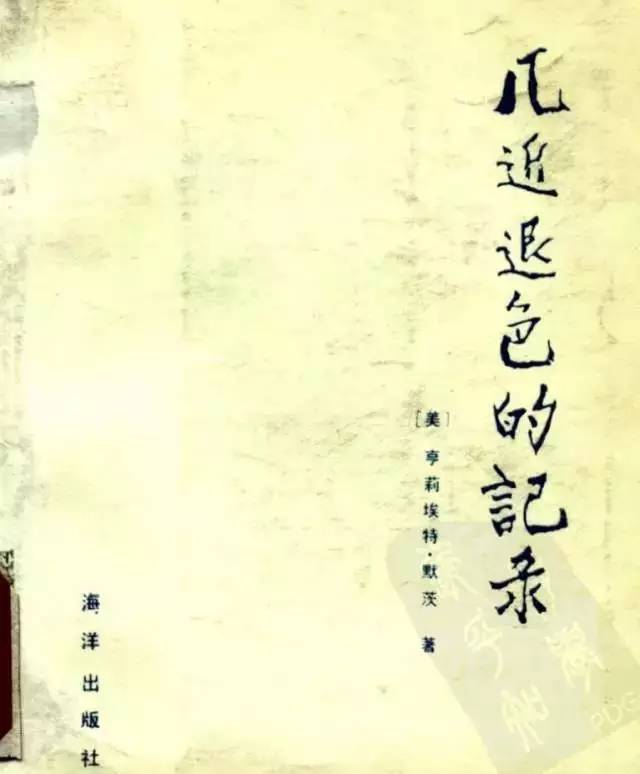 几近退色的記录
[美] 亨莉埃特·默茨 著
海洋出版社
PDG